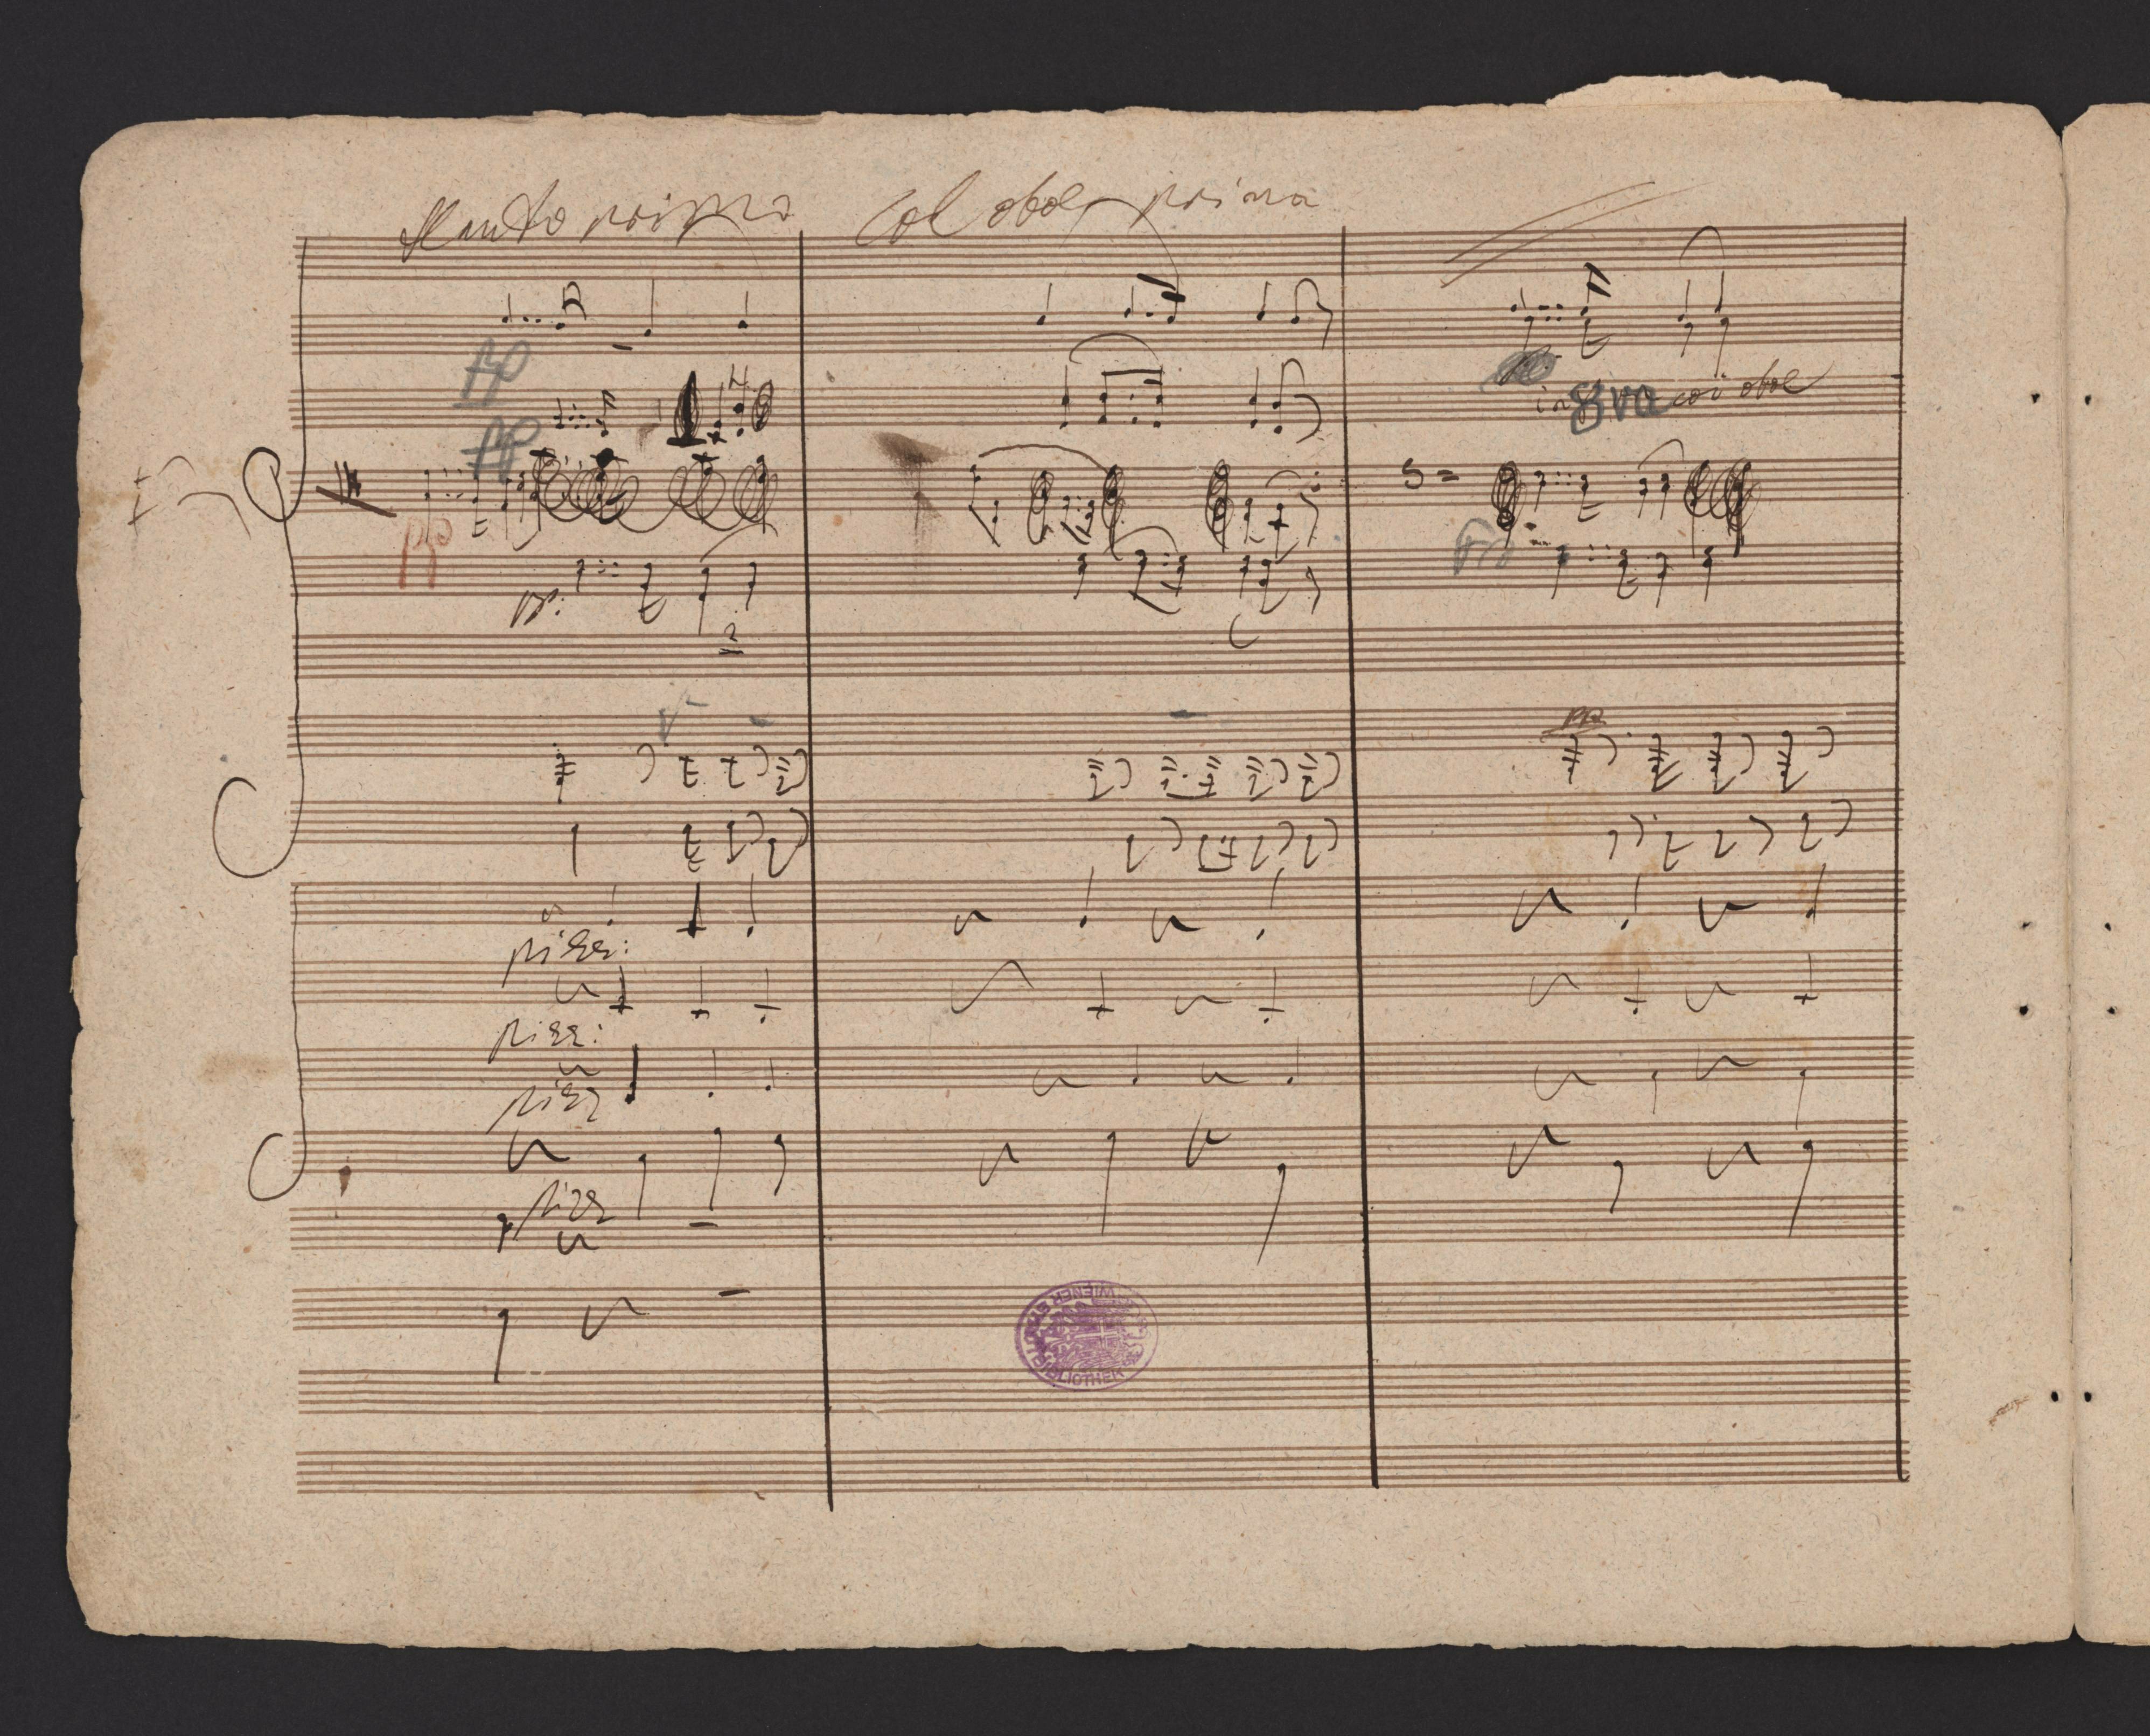 flauto primo col oboe primo
pp
in 8va coi oboe
pp
pp
pp:
pp
pizz:
pizz:
pizz
pizz
WIENER STADTBIBLIOTHEK